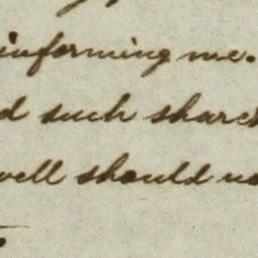 informing me.
d such share
well should